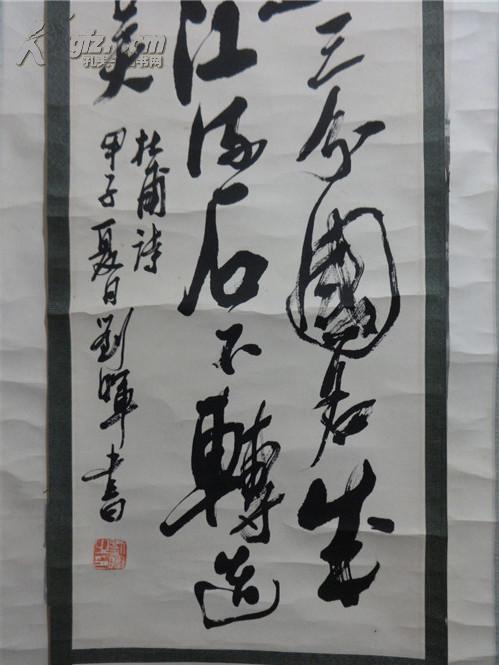 三分國名成
江流石不轉遺
吳
杜甫詩
甲子夏日劉暉書
孔夫子旧书网